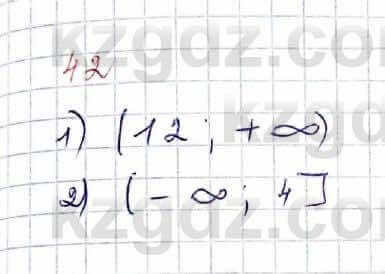 kzgdz.com
42
kzgdz.com
1) (12 ; +∞)
2) (-∞; 4]
kzgdz.com